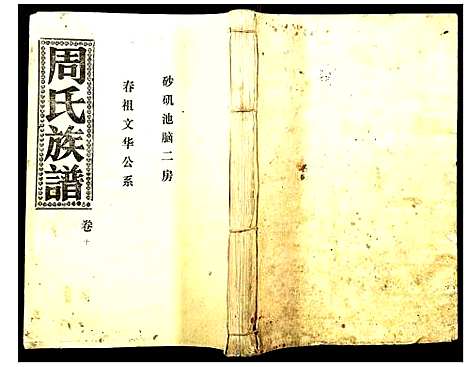 砂矶池脑二房
春祖文华公系
周氏族譜
卷十